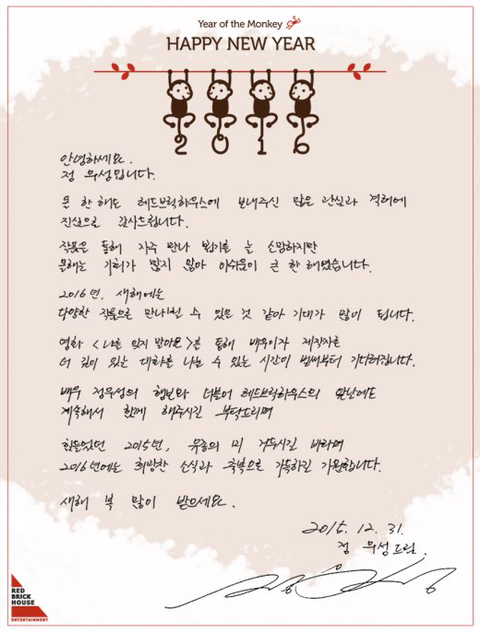 Year of the Monkey
HAPPY NEW YEAR
2016
안녕하세요.
정 우성입니다.
큰 한 해도 레드브릭하우스에 보내주신 많은 관심과 격려에
진심으로 감사드립니다.
작품을 통해 자주 만나 뵙기를 늘 소망하지만
올해는 기회가 많지 않아 아쉬움이 큰 한 해였습니다.
2016년, 새해에는
다양한 작품으로 만나뵐 수 있을 것 같아 기대가 많이 됩니다.
영화 <나를 잊지 말아요>를 통해 배우이자 제작자로
더 깊이 있는 대화를 나눌 수 있는 시간이 벌써부터 기다려집니다.
배우 정우성의 행보와 더불어 레드브릭하우스의 앞날에도
계속해서 함께 해주시길 부탁드리며
힘들었던 2015년, 유종의 미 거두시길 바라며
2016년에는 희망찬 소식과 축복으로 가득하길 기원합니다.
새해 복 많이 받으세요.
2015. 12. 31.
정 우성드림.
RED
BRICK
HOUSE
ENTERTAINMENT